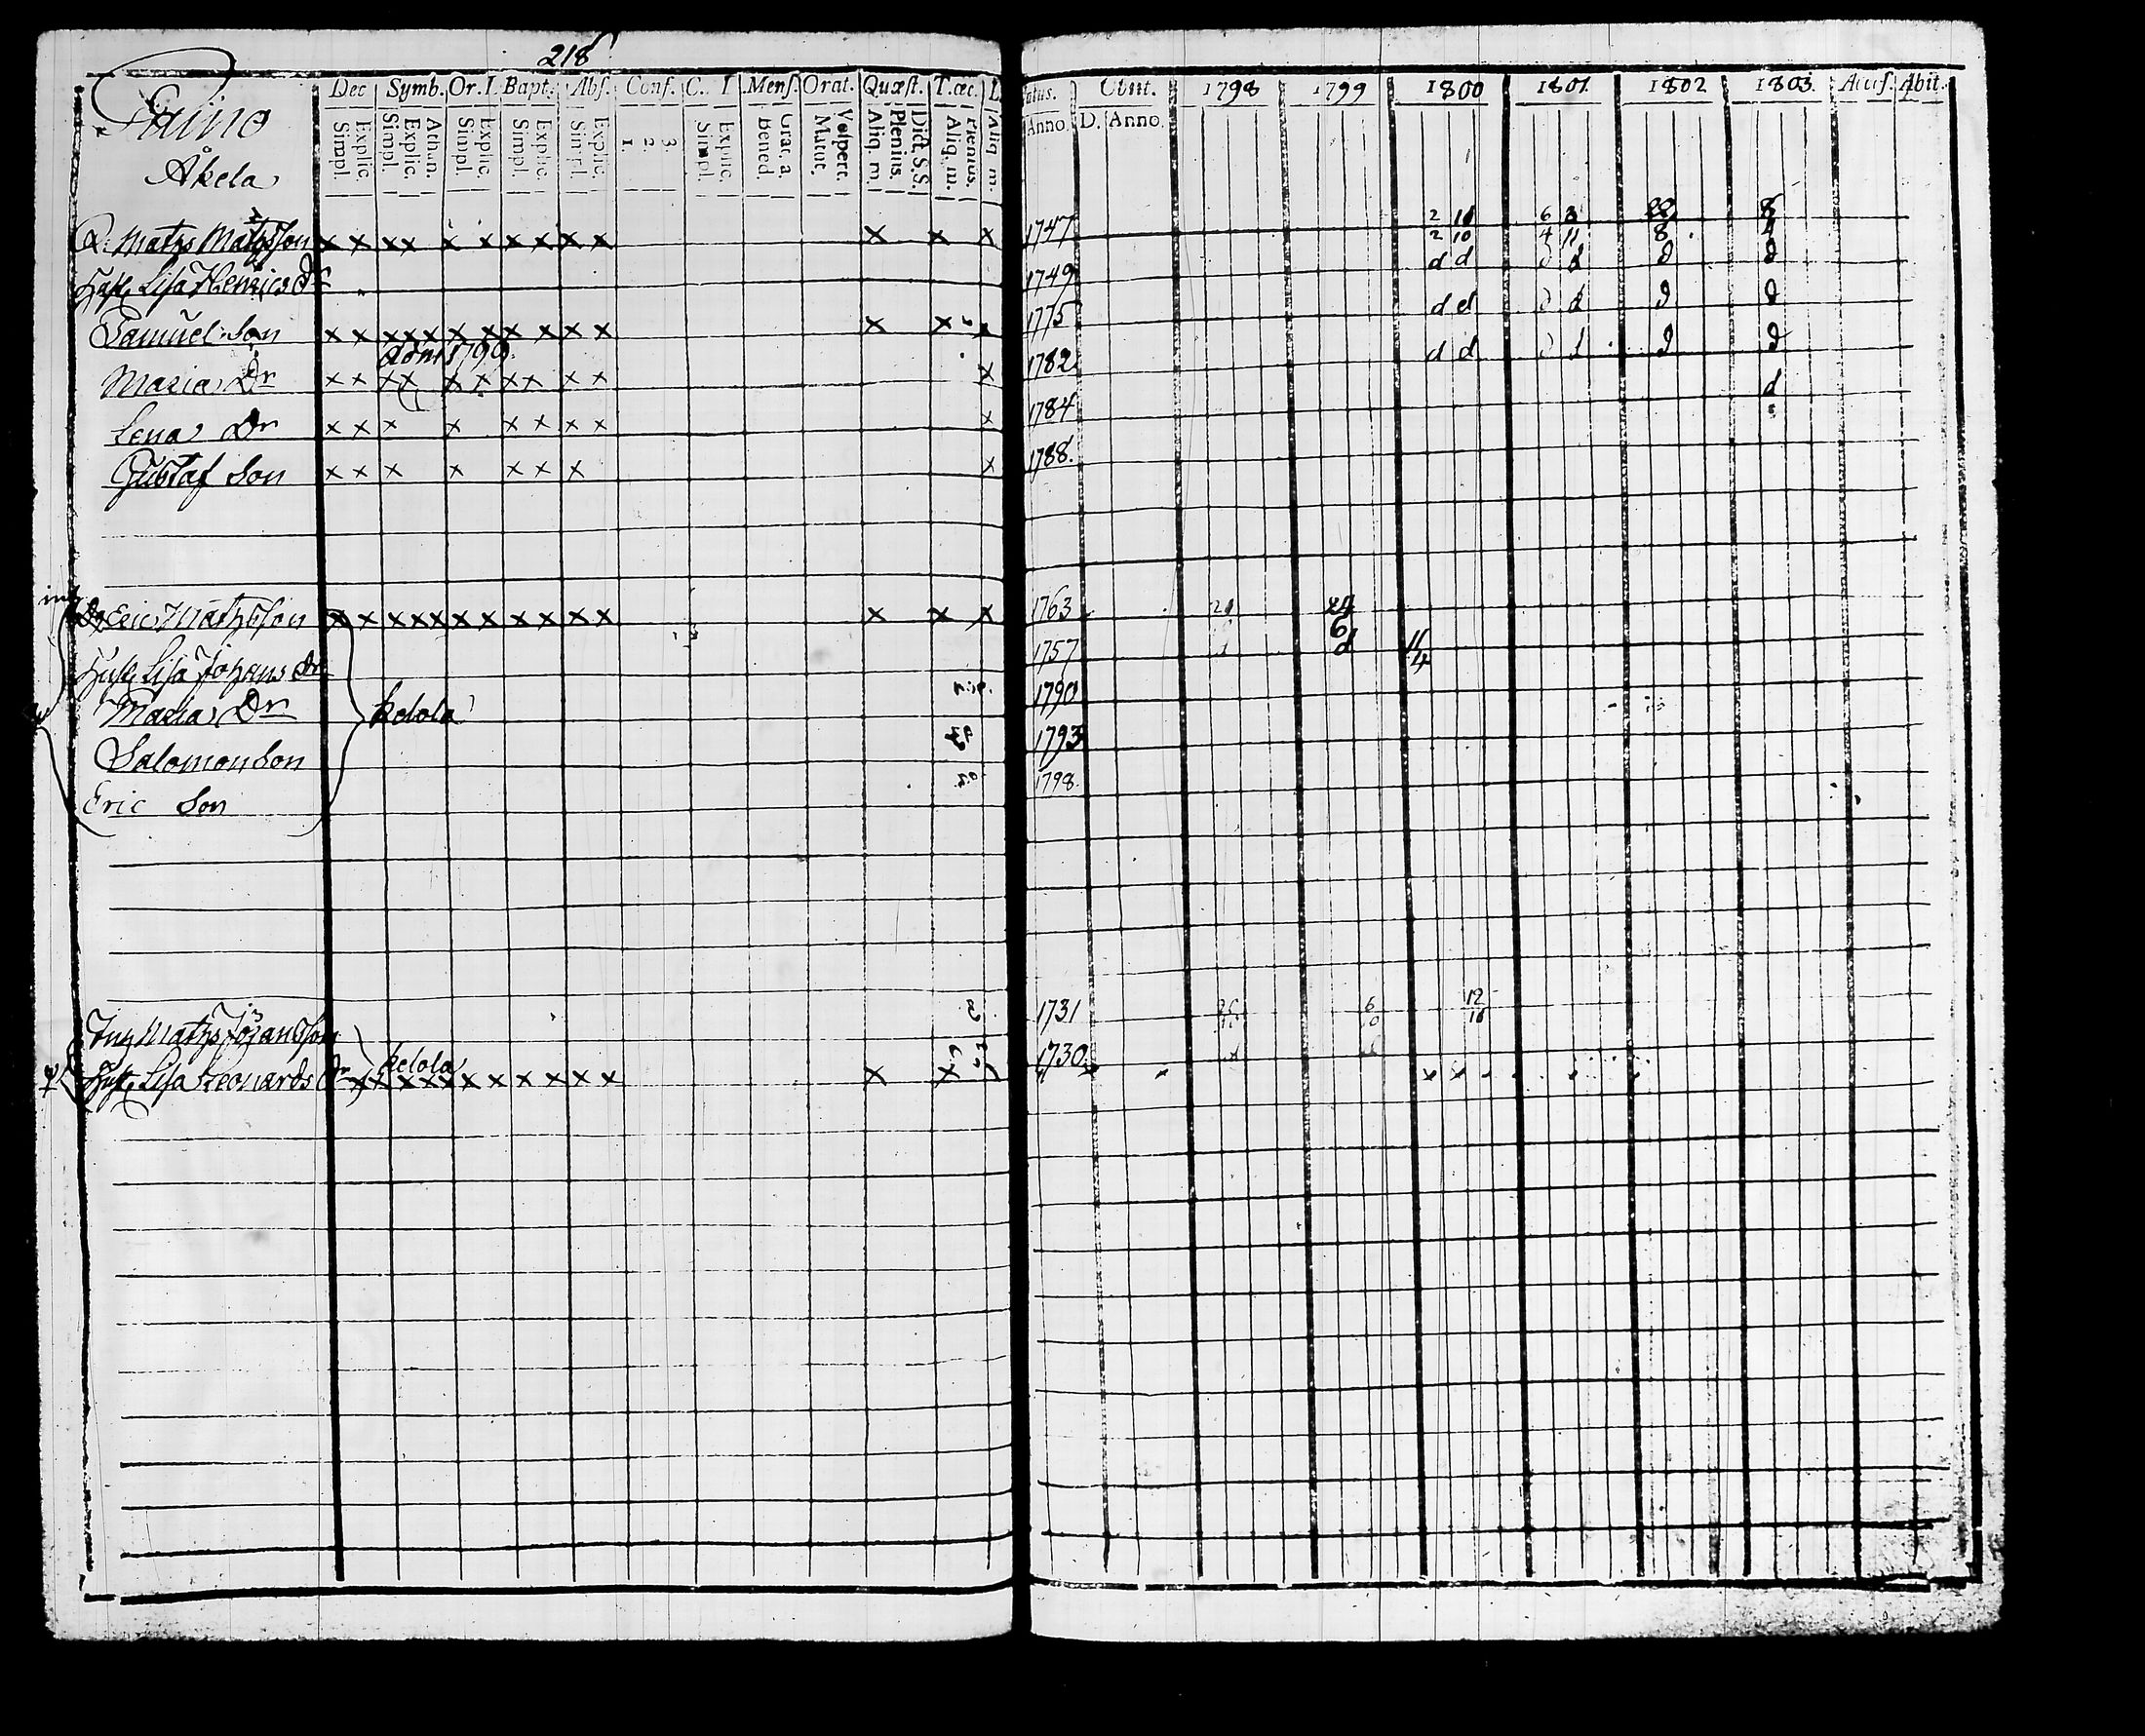 218
Dec. Symb. Or. I. Bapt. Abs. Conf. C. I Mens. Orat. Quæst. T. œc. Obiit. 1798 1799 1800 1801 1802 1803 Accus. Abiit.
Simpl. Explic. Simpl. Explic. Athan. Simpl. Explic. Simpl. Explic. Simpl. Explic. 1. 2. 3. Simpl. Explic. Bened. Grat. a. Matut. Vespert. Aliq. m. Plenius. Dict. S.S. Aliq. m. Plenius. Aliq. m. Anno. D. Anno.
Paiino
Åkela
R. Matts Mattsson x x x x x x x x x x x x x 1747 2 10 6 3 8
2 10 4 11 8 4
Hust. Lisa Henrics Dr 1749 d d d d d d
Samuel Son x x x x x x x x x x x x x x 1775 d d d d d d
dom 1799
Maria Dr x x x x x x x x x x x 1782 d d d d d d
Lena Dr x x x x x x x x x 1784 d
Gustaf Son x x x x x x x x 1788.
Eric Mattsson x x x x x x x x x x x x x x 1763 24
6
Hust. Lisa Johans Dr 1757 d 11 4
Maria Dr kelola 1790
Salomon Son 1793
Eric Son 1798.
Inh Matts Johansson 1731 6 12
10 10
Hust. Lisa Leonards Dr kelola x x x x x x x x x x x x x 1730